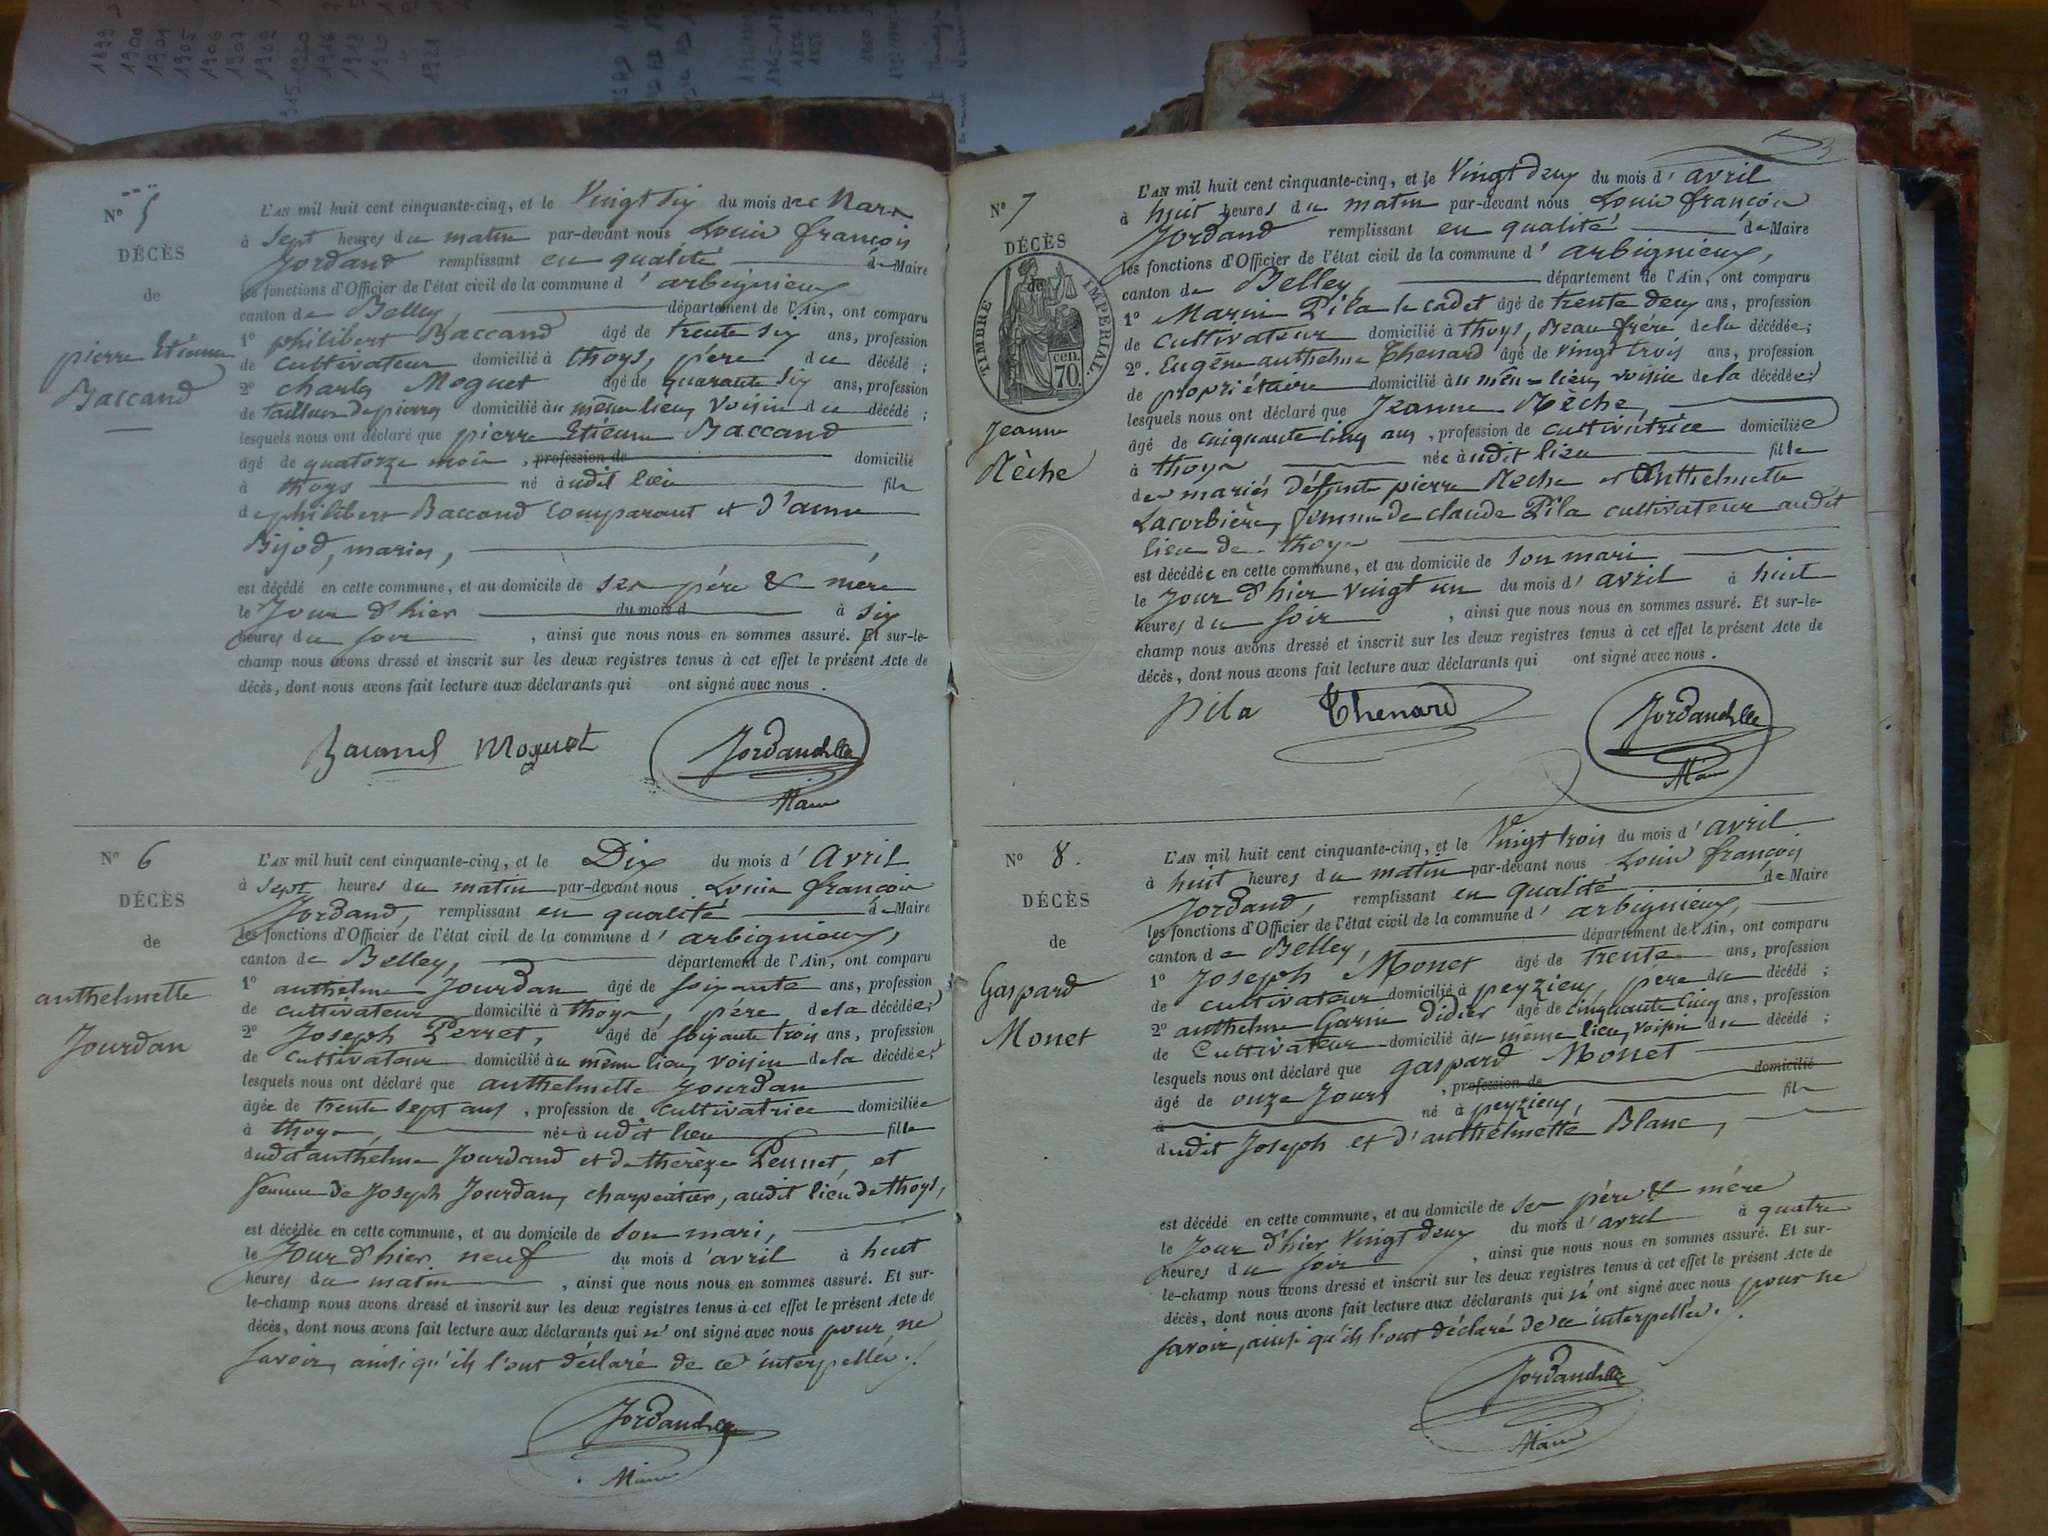 N° 5
DÉCÈS
de
pierre Etienne
Baccand
L'AN mil huit cent cinquante-cinq, et le Vingt six du mois de Mars
à Sept heures du matin par-devant nous Louis françois
Jordand remplissant en qualité de Maire
les fonctions d'Officier de l'état civil de la commune d'arbignieux
canton de Belley, département de l'Ain, ont comparu
1° philibert Baccand âgé de trente six ans, profession
de cultivateur domicilié à thoys, père du décédé ;
2° charles Moguet âgé de quarante six ans, profession
de tailleur de pierres domicilié au même lieu, voisin du décédé ;
lesquels nous ont déclaré que pierre Etienne Baccand
âgé de quatorze mois, profession de domicilié
à thoys né audit lieu fils
de philibert Baccand comparant et d'anne
Bijod, mariés,
est décédé en cette commune, et au domicile de ses père & mère
le Jour d'hier du mois d à six
heures du soir, ainsi que nous nous en sommes assuré. Et sur-le-
champ nous avons dressé et inscrit sur les deux registres tenus à cet effet le présent Acte de
décès, dont nous avons fait lecture aux déclarants qui ont signé avec nous.
Baccand Moguet Jordand
Maire
N° 6
DÉCÈS
de
anthelmette
Jourdan
L'AN mil huit cent cinquante-cinq, et le Dix du mois d'Avril
à Sept heures du matin par-devant nous Louis françois
Jordand, remplissant en qualité de Maire
les fonctions d'Officier de l'état civil de la commune d'arbignieux,
canton de Belley, département de l'Ain, ont comparu
1° anthelme Jourdan âgé de soixante ans, profession
de cultivateur domicilié à thoys, père de la décédée;
2° Joseph Perret, âgé de soixante trois ans, profession
de cultivateur domicilié au même lieu, voisin de la décédée;
lesquels nous ont déclaré que anthelmette Jourdan
âgée de trente sept ans, profession de cultivatrice domiciliée
à thoys, née audit lieu fille
dudit anthelme Jourdand et de thérèze Pennet, et
femme de Joseph Jourdan, charpentier, audit lieu de thoys,
est décédée en cette commune, et au domicile de son mari,
le Jour d'hier neuf du mois d'avril à huit
heures du matin, ainsi que nous nous en sommes assuré. Et sur-
le-champ nous avons dressé et inscrit sur les deux registres tenus à cet effet le présent Acte de
décès, dont nous avons fait lecture aux déclarants qui n'ont signé avec nous pour ne
savoir, ainsi qu'ils l'ont déclaré de ce interpellés./.
Jordand
Maire
N° 7
DÉCÈS
de
TIMBRE IMPERIAL.
cen.
70.
Jeanne
Rèche
L'AN mil huit cent cinquante-cinq, et le Vingt deux du mois d'avril
à huit heures du matin par-devant nous Louis françois
Jordand remplissant en qualité de Maire
les fonctions d'Officier de l'état civil de la commune d'arbignieux,
canton de Belley, département de l'Ain, ont comparu
1° Marin Pila le cadet âgé de trente deux ans, profession
de cultivateur domicilié à thoys, Beau frère de la décédée;
2° Eugène anthelme Thenard âgé de vingt trois ans, profession
de propriétaire domicilié au même lieu, voisin de la décédée;
lesquels nous ont déclaré que Jeanne Rèche,
âgé de cinquante cinq ans, profession de cultivatrice domiciliée
à thoys née audit lieu fille
des mariés défunts pierre Rèche et Anthelmette
Lacorbière, femme de claude Pila cultivateur audit
lieu de thoys
est décédée en cette commune, et au domicile de son mari
le Jour d'hier vingt un du mois d'avril à huit
heures du soir, ainsi que nous nous en sommes assuré. Et sur-le-
champ nous avons dressé et inscrit sur les deux registres tenus à cet effet le présent Acte de
décès, dont nous avons fait lecture aux déclarants qui ont signé avec nous.
pila Thenard Jordand
Maire
N° 8.
DÉCÈS
de
Gaspard
Monet
L'AN mil huit cent cinquante-cinq, et le Vingt trois du mois d'avril
à huit heures du matin par-devant nous Louis françois
Jordand, remplissant en qualité de Maire
les fonctions d'Officier de l'état civil de la commune d'arbignieux,
canton de Belley, département de l'Ain, ont comparu
1° Joseph Monet âgé de trente ans, profession
de cultivateur domicilié à peyzieu, père du décédé ;
2° anthelme Garin Didier âgé de cinquante cinq ans, profession
de Cultivateur domicilié au même lieu, voisin du décédé ;
lesquels nous ont déclaré que gaspard Monet
âgé de onze Jours, profession de domicilié
à né à peyzieu, fils
dudit Joseph et d'anthelmette Blanc,
est décédé en cette commune, et au domicile de ses père & mère
le Jour d'hier vingt deux du mois d'avril à quatre
heures du soir, ainsi que nous nous en sommes assuré. Et sur-
le-champ nous avons dressé et inscrit sur les deux registres tenus à cet effet le présent Acte de
décès, dont nous avons fait lecture aux déclarants qui n'ont signé avec nous pour ne
savoir, ainsi qu'ils l'ont déclaré de ce interpellés./.
Jordand
Maire